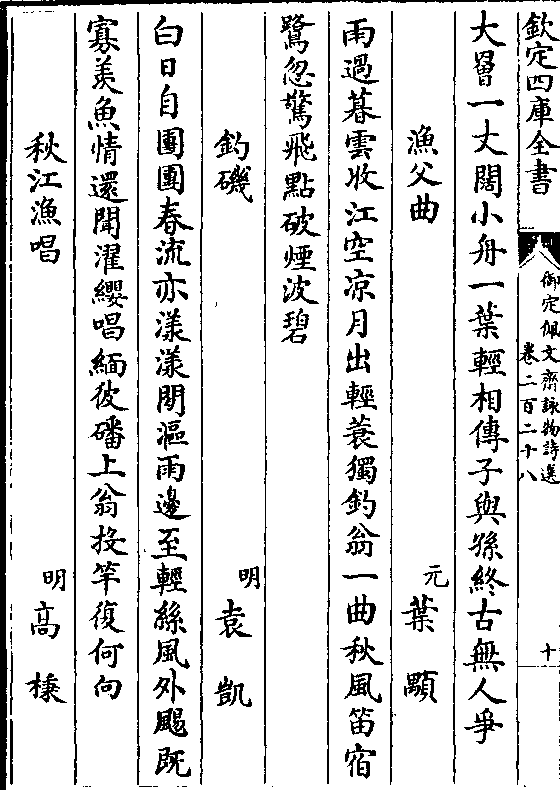 欽定四庫全書
御定佩文齋詠物詩選
卷二百二十八
十
大罾一丈闊小舟一葉輕相傳子與孫終古無人爭
漁父曲
元
葉顒
雨過暮雲收江空凉月出輕蓑獨釣翁一曲秋風笛宿
鷺忽驚飛點破煙波碧
釣磯
明
袁凱
白日自團團春流亦漾漾閒漚雨邊至輕絲風外颺既
寡羡魚情還聞濯纓唱緬彼磻上翁投竿復何向
秋江漁唱
明
高棅